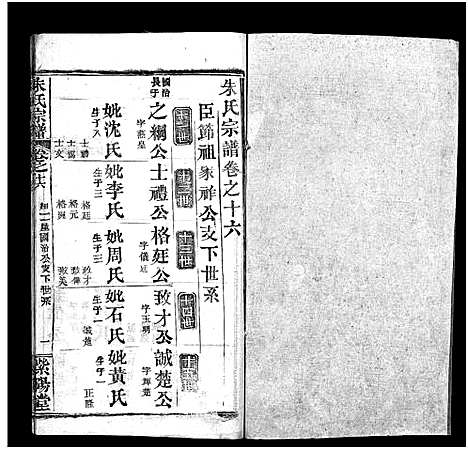 朱氏宗譜卷之十六
臣節祖家祥公支下世系
十一世
十二世
十三世
十四世
十五世
國治長子
之綱公
字燕皇
士禮公
格廷公
字儀廷
致才公
字玉明
誠楚公
字輝楚
妣沈氏
生子
士禮
妣李氏
生子三
格廷
格元
妣周氏
生子三
致才
妣石氏
生子一
誠楚
妣黃氏
生子一
正隆
朱氏宗譜
卷之十六
國治公支下世系
一
紫陽堂